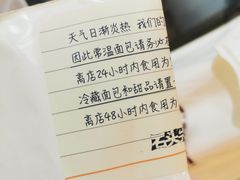 天气日渐炎热 我们的
因此常温面包请务必
离店24小时内食用为
冷藏面包和甜品请置
离店48小时内食用为